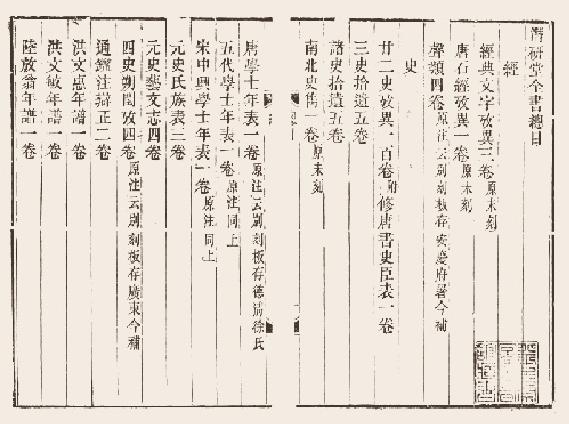 潛研堂全書總目
經
經典文字攷異三卷原未刻
唐石經攷異一卷原未刻
聲類四卷原注云別刻板存安慶府署今補
史
廿二史攷異一百卷附修唐書史臣表一卷
三史拾遺五卷
諸史拾遺五卷
南北史雋一卷原未刻
唐學士年表一卷原注云別刻板存德淸徐氏
五代學士年表一卷原注同上
宋中興學士年表一卷原注同上
元史氏族表三卷
元史藝文志四卷
四史朔閏攷四卷原注云別刻板存廣東今補
通鑑注辯正二卷
洪文惠年譜一卷
洪文敏年譜一卷
陸放翁年譜一卷